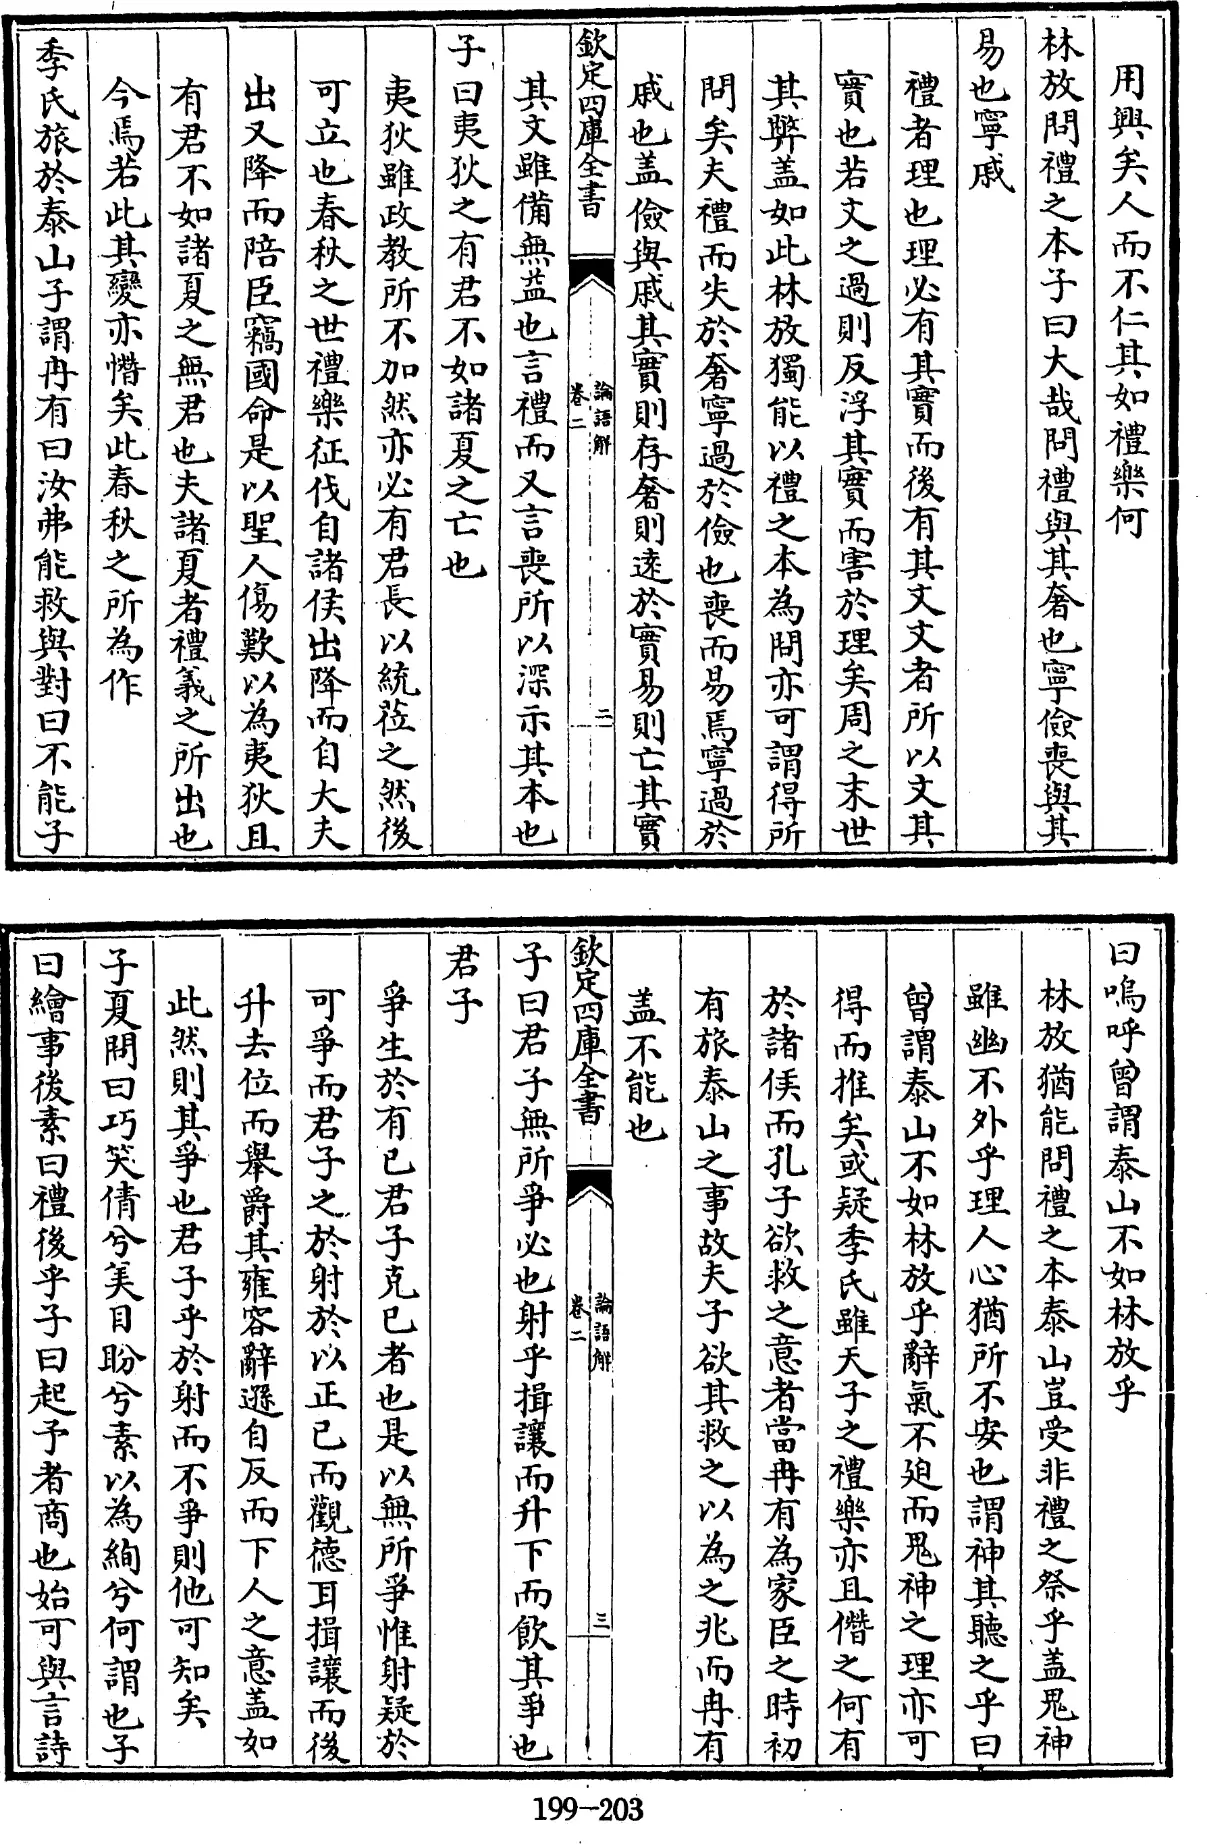 用興矣人而不仁其如禮樂何
林放問禮之本子曰大哉問禮與其奢也寧儉喪與其
易也寧戚
禮者理也理必有其實而後有其文文者所以文其
實也若文之過則反浮其實而害於理矣周之末世
其弊盖如此林放獨能以禮之本為問亦可謂得所
問矣夫禮而失於奢寧過於儉也喪而易焉寧過於
戚也盖儉與戚其實則存奢則遠於實易則亡其實
欽定四庫全書
論語解
卷二
二
其文雖備無益也言禮而又言喪所以深示其本也
子曰夷狄之有君不如諸夏之亡也
夷狄雖政教所不加然亦必有君長以統莅之然後
可立也春秋之世禮樂征伐自諸侯出降而自大夫
出又降而陪臣竊國命是以聖人傷歎以為夷狄且
有君不如諸夏之無君也夫諸夏者禮義之所出也
今焉若此其變亦憯矣此春秋之所為作
季氏旅於泰山子謂冉有曰汝弗能救與對曰不能子
曰嗚呼曾謂泰山不如林放乎
林放猶能問禮之本泰山豈受非禮之祭乎盖鬼神
雖幽不外乎理人心猶所不安也謂神其聽之乎曰
曾謂泰山不如林放乎辭氣不廹而鬼神之理亦可
得而推矣或疑季氏雖天子之禮樂亦且僭之何有
於諸侯而孔子欲救之意者當冉有為家臣之時初
有旅泰山之事故夫子欲其救之以為之兆而冉有
盖不能也
欽定四庫全書
論語解
卷二
三
子曰君子無所爭必也射乎揖讓而升下而飲其爭也
君子
爭生於有己君子克己者也是以無所爭惟射疑於
可爭而君子之於射於以正己而觀德耳揖讓而後
升去位而舉爵其雍容辭遜自反而下人之意盖如
此然則其爭也君子乎於射而不爭則他可知矣
子夏問曰巧笑倩兮美目盼兮素以為絢兮何謂也子
曰繪事後素曰禮後乎子曰起予者商也始可與言詩
199-203